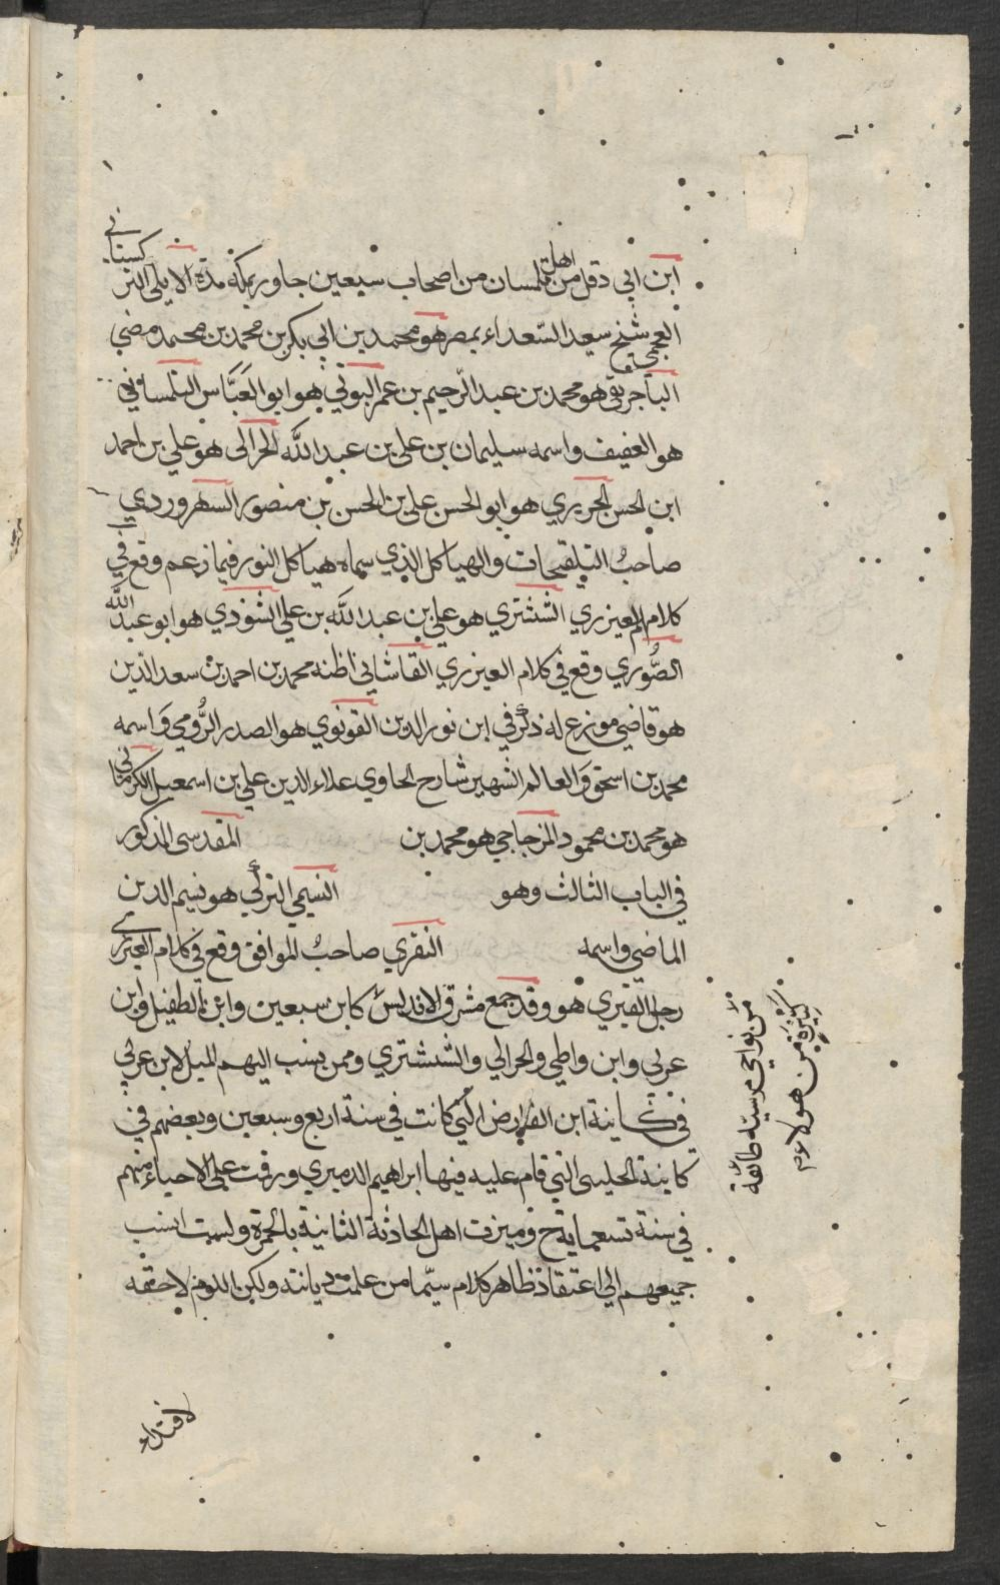 ابن ابي دقل من اهل تلمسان من اصحاب سبعين جاور بمكة مدة الايلي التركستاني
العجمي شيخ سعيد السعداء بمصر هو محمد بن ابي بكر بن محمد بن محمد مضى
الباجربقي هو محمد بن عبد الرحيم بن عمر البوني هو ابو العباس التلمساني
هو العفيف واسمه سليمان بن علي بن عبد الله الحرالى هو علي بن احمد
ابن الحسن الحريري هو ابو الحسن علي بن الحسن بن منصور السهروردي
صاحب التلقيحات والهياكل الذي سماه هياكل النور فيما زعم وقع في
كلام العيزري الششتري هو علي بن عبد الله بن علي الشوذي هو ابو عبد الله
الصوري وقع في كلام العيزري القاشاني اظنه محمد بن احمد بن سعد الدين
هو قاضي موزع له ذكر في ابن نور الدين القونوي هو الصدر الرومي واسمه
محمد بن اسحق والعالم الشهير شارح الحاوي علاء الدين علي بن اسمعيل الكرماني
هو محمد بن محمود المزجاجي هو محمد بن المقدسى المذكور
في الباب الثالث وهو النسيمي التركي هو نسيم الدين
الماضي واسمه النفري صاحب المواقف وقع في كلام العيزري
رجل القيري هو وقد جمع مشرق الاندلس كابن سبعين وابن الطفيل وابن
عربي وابن واطي والحرالي والششتري وممن ينسب اليهم الميل لابن عربي
في كاينة ابن الفارض التي كانت في سنة اربع وسبعين وبعضهم في
كاينة الحليبى التي قام عليه فيها ابراهيم الدميري ورقمت على الاحياء منهم
في سنة تسعماية ح وميزت اهل الحادثة الثانية بالحمرة ولست انسب
جميعهم الى اعتقاد ظاهر كلام سيما من علمت ديانته ولكن اللوم لاحقه
من نواحي مرسية طائفة
كثيرة من هولاء
لاقتداء